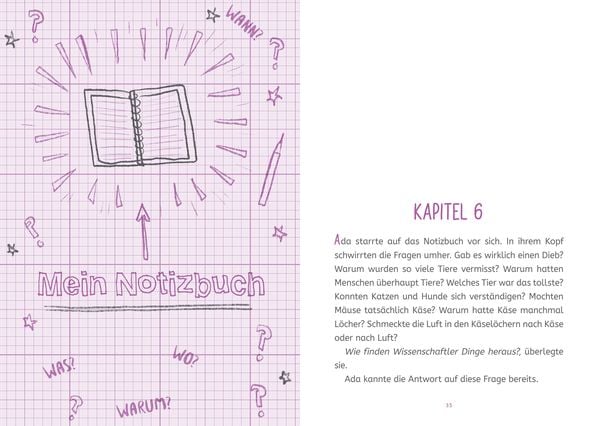 WANN?
?
?
Mein Notizbuch
?
?
WAS?
WO?
?
WARUM?
?
KAPITEL 6
Ada starrte auf das Notizbuch vor sich. In ihrem Kopf
schwirrten die Fragen umher. Gab es wirklich einen Dieb?
Warum wurden so viele Tiere vermisst? Warum hatten
Menschen überhaupt Tiere? Welches Tier war das tollste?
Konnten Katzen und Hunde sich verständigen? Mochten
Mäuse tatsächlich Käse? Warum hatte Käse manchmal
Löcher? Schmeckte die Luft in den Käselöchern nach Käse
oder nach Luft?
Wie finden Wissenschaftler Dinge heraus?, überlegte
sie.
Ada kannte die Antwort auf diese Frage bereits.
35